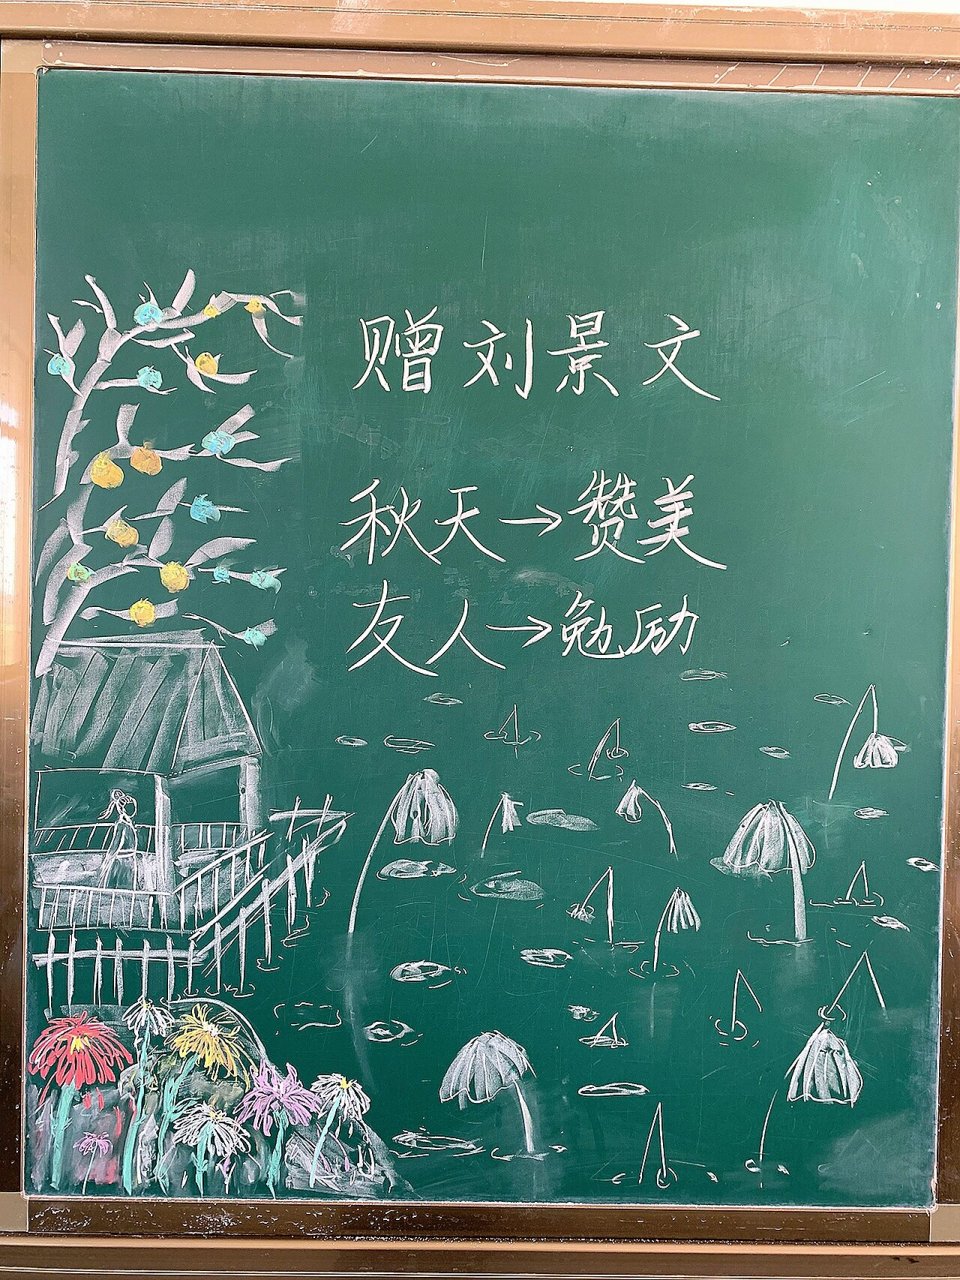 赠刘景文
秋天→赞美
友人→勉励